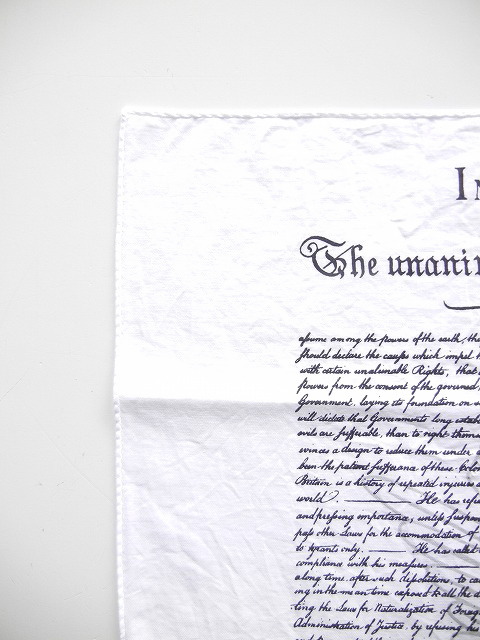 In
The unanim
assume among the powers of the earth, the
should declare the causes which impel t
with certain unalienable Rights, that
powers from the consent of the governed,
Government, laying its foundation on s
will dictate that Governments long estab
evils are sufferable, than to right thems
evinces a design to reduce them under
been the patient sufferance of these Colon
Britain is a history of repeated injuries a
world. He has refu
and pressing importance, unless suspen
pass other Laws for the accommodation of
to tyrants only. He has called
compliance with his measures.
along time, after such dissolutions, to ca
ing in the mean time exposed to all the d
ting the Laws for Naturalization of Foreig
Administration of Justice, by refusing his